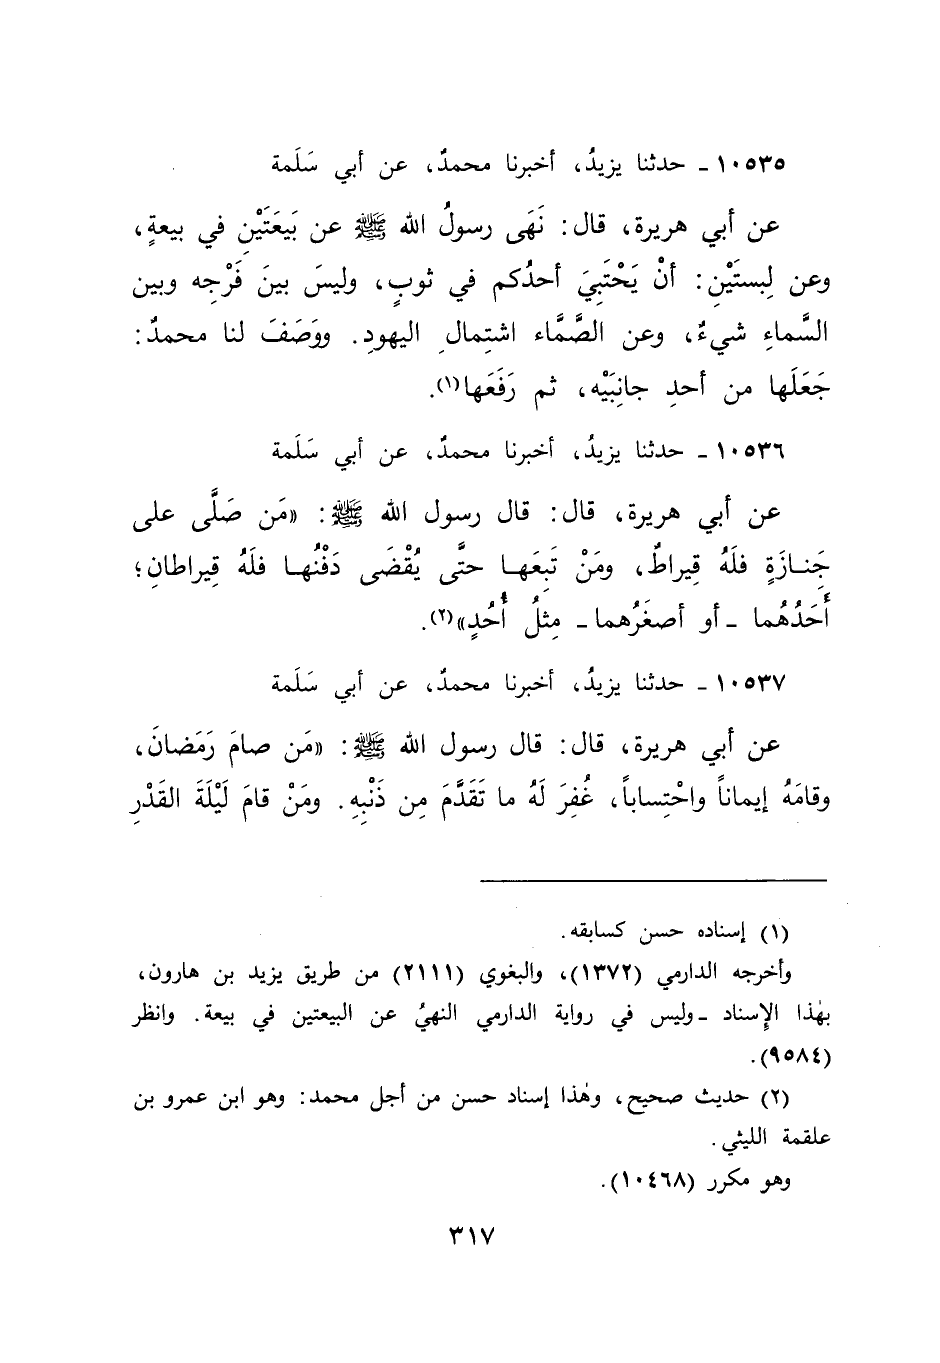 ١٠٥٣٥ - حدثنا يزيدُ، أخبرنا محمدٌ، عن أبي سَلَمة
عن أبي هريرة، قال: نَهَى رسولُ الله ﷺ عن بَيعَتَيْنِ في بيعةٍ،
وعن لِبستَيْنِ: أنْ يَحْتَبِيَ أحدُكم في ثوبٍ، وليسَ بينَ فَرْجِه وبين
السَّماءِ شيءٌ، وعن الصَّمَّاء اشتِمالِ اليهودِ. ووَصَفَ لنا محمدٌ:
جَعَلَها من أحدِ جانِبَيْه، ثم رَفَعَها(١).
١٠٥٣٦ - حدثنا يزيدُ، أخبرنا محمدٌ، عن أبي سَلَمة
عن أبي هريرة، قال: قال رسول الله ﷺ: «مَن صَلَّى على
جَِنازَةٍ فلَهُ قِيراطٌ، ومَنْ تَبِعَها حتَّى يُقْضَى دَفْنُها فلَهُ قِيراطانِ؛
أَحَدُهُما - أو أصغَرُهما - مِثلُ أُحُدٍ»(٢).
١٠٥٣٧ - حدثنا يزيدُ، أخبرنا محمدٌ، عن أبي سَلَمة
عن أبي هريرة، قال: قال رسول الله ﷺ: «مَن صامَ رَمَضانَ،
وقامَهُ إيماناً واحْتِساباً، غُفِرَ لَهُ ما تَقَدَّمَ مِن ذَنْبِهِ. ومَنْ قامَ لَيْلَةَ القَدْرِ
(١) إسناده حسن كسابقه.
وأخرجه الدارمي (١٣٧٢)، والبغوي (٢١١١) من طريق يزيد بن هارون،
بهٰذا الإِسناد - وليس في رواية الدارمي النهيُ عن البيعتين في بيعة. وانظر
(٩٥٨٤).
(٢) حديث صحيح، وهٰذا إسناد حسن من أجل محمد: وهو ابن عمرو بن
علقمة الليثي.
وهو مكرر (١٠٤٦٨).
٣١٧